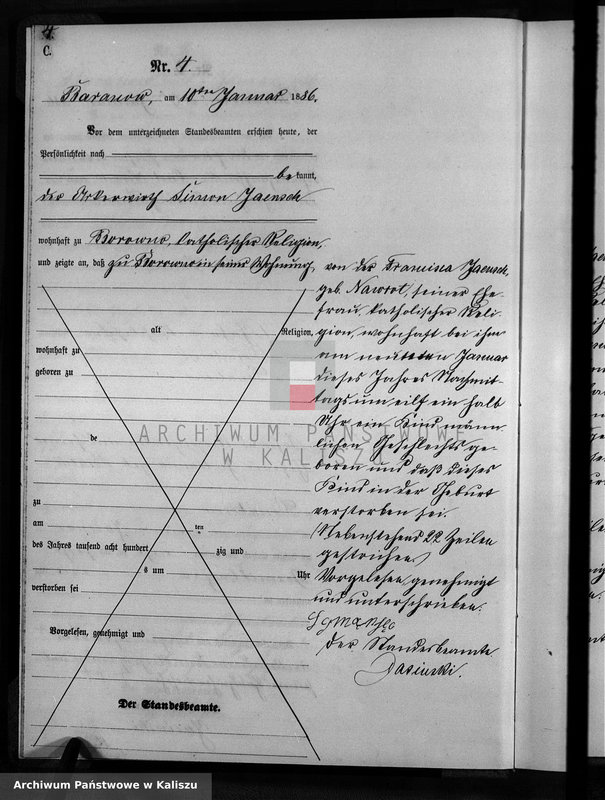 4.
C.
Nr. 4.
Baranow, am 10ten Januar 1886.
Vor dem unterzeichneten Standesbeamten erschien heute, der
Persönlichkeit nach
bekannt,
der Ackerwirth Simon Jaensch
wohnhaft zu Borowno, katholischer Religion,
und zeigte an, daß zu Borowno in seiner Wohnung,
von der Francisca Jaensch,
geb. Nawrot, seiner Ehe-
frau, katholischer Reli-
gion, wohnhaft bei ihm
am neunten Januar
dieses Jahres Nachmit-
tags um eilf ein halb
Uhr ein Kind männ-
lichen Geschlechts ge-
boren und daß dieses
Kind in der Geburt
verstorben sei.
(Nebenstehend 22 Zeilen
gestrichen)
Vorgelesen, genehmigt
und unterschrieben.
Der Standesbeamte.
alt Religion,
wohnhaft zu
geboren zu
de
zu
am ten
des Jahres tausend acht hundert zig und
s um Uhr
verstorben sei
Vorgelesen, genehmigt und
Der Standesbeamte.
ARCHIWUM PAŃSTWOWE
W KALISZU
Archiwum Państwowe w Kaliszu